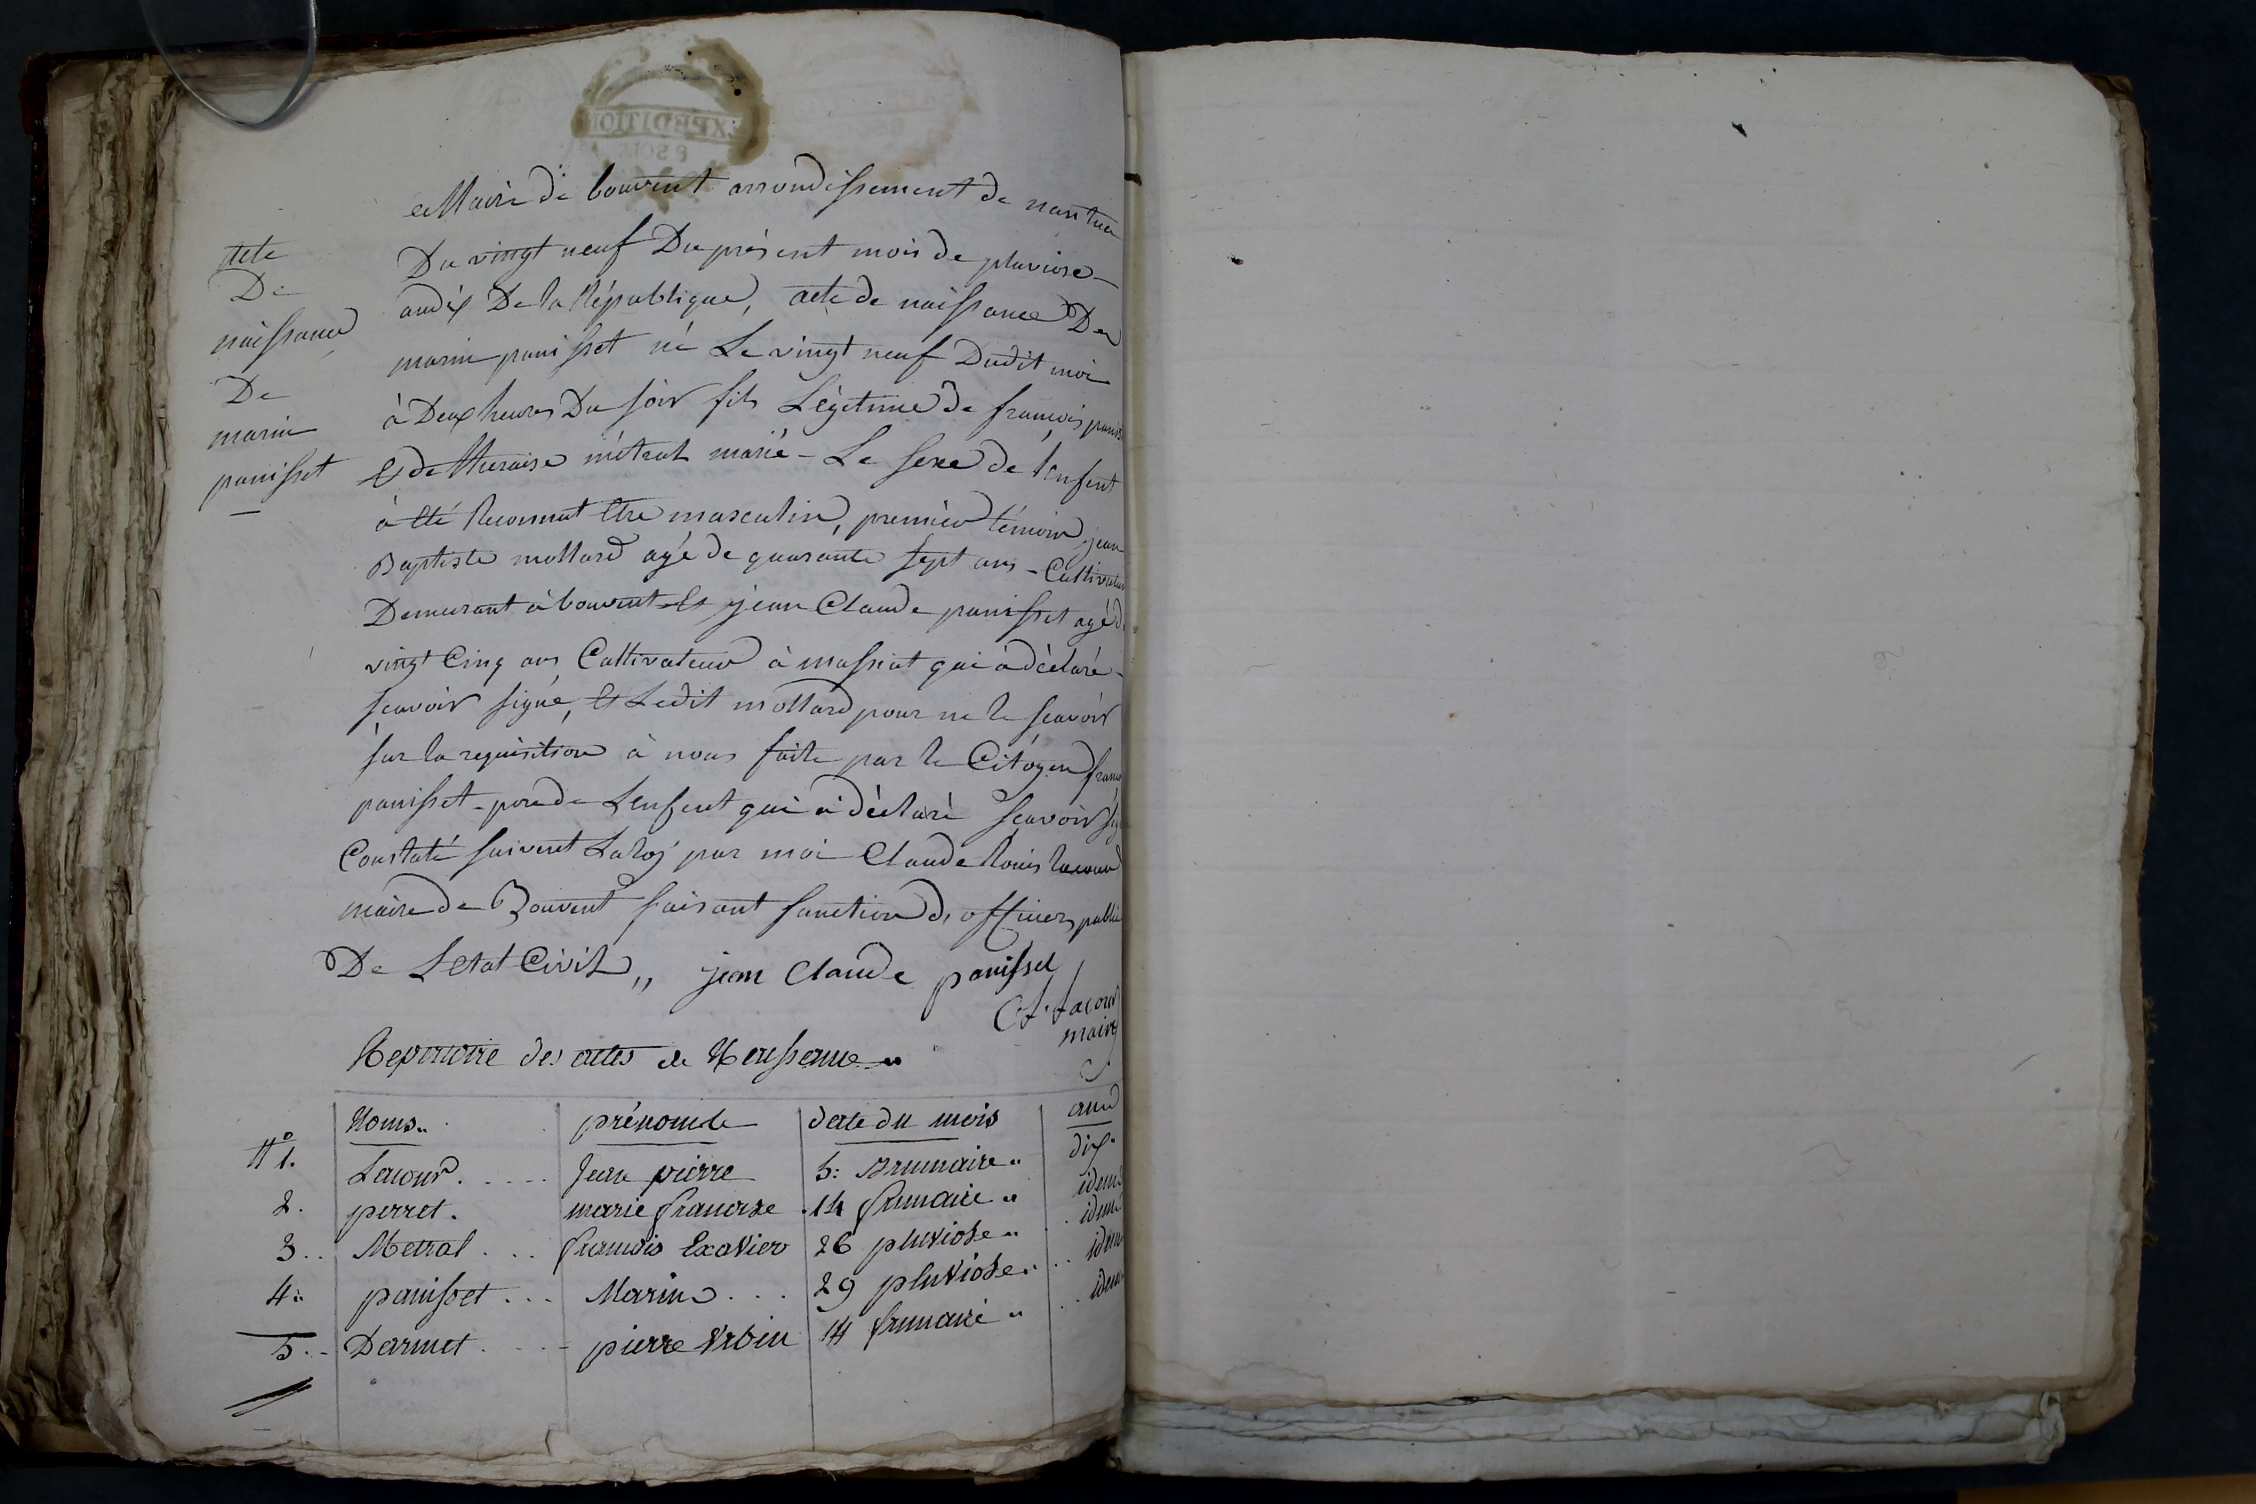 EXPEDITION
Mairie de bouvent arrondissement de nantua
acte
De
naissance
De
marin
panisset
Du vingt neuf Du présent mois de pluviose
an dix De la République, acte de naissance De
marin panisset né Le vingt neuf Dudit moi
à Deux heures Du soir fils Légitime de françois panis
Et de theraise métral marié - Le sexe de l'enfent
à été Reconnut Etre masculin, premier témoin jean
Baptiste mollard agé de quarante sept ans - Cultivateur
Demeurant à bouvent Et jean Claude panisset agé d
vingt Cinq ans Cultivateur à massiat qui à déclaré
scavoir signé, Et Ledit mollard pour ne le scavoir
sur la requisition à nous faite par le Citoyen franc
panisset - pere de Lenfent qui à déclaré scavoir sig
Constaté suivent La loy par moi Claude Louis Lacour
maire de Bouvent faisant fonction d'officier public
De L'Etat Civil,, jean Claude panisset
C L Lacour
maire
Repertoire des actes de Naissance
Noms prénoms date du mois anné
N° 1. Lacour Jean pierre 5: Brumaire dix
2. perret. marie francoise 14 frimaire idem
3 Metral francois Exavier 26 pluviose idem
4 panisset Marin 29 pluviose idem
5 Darmet pierre Urbin 14 frimaire idem